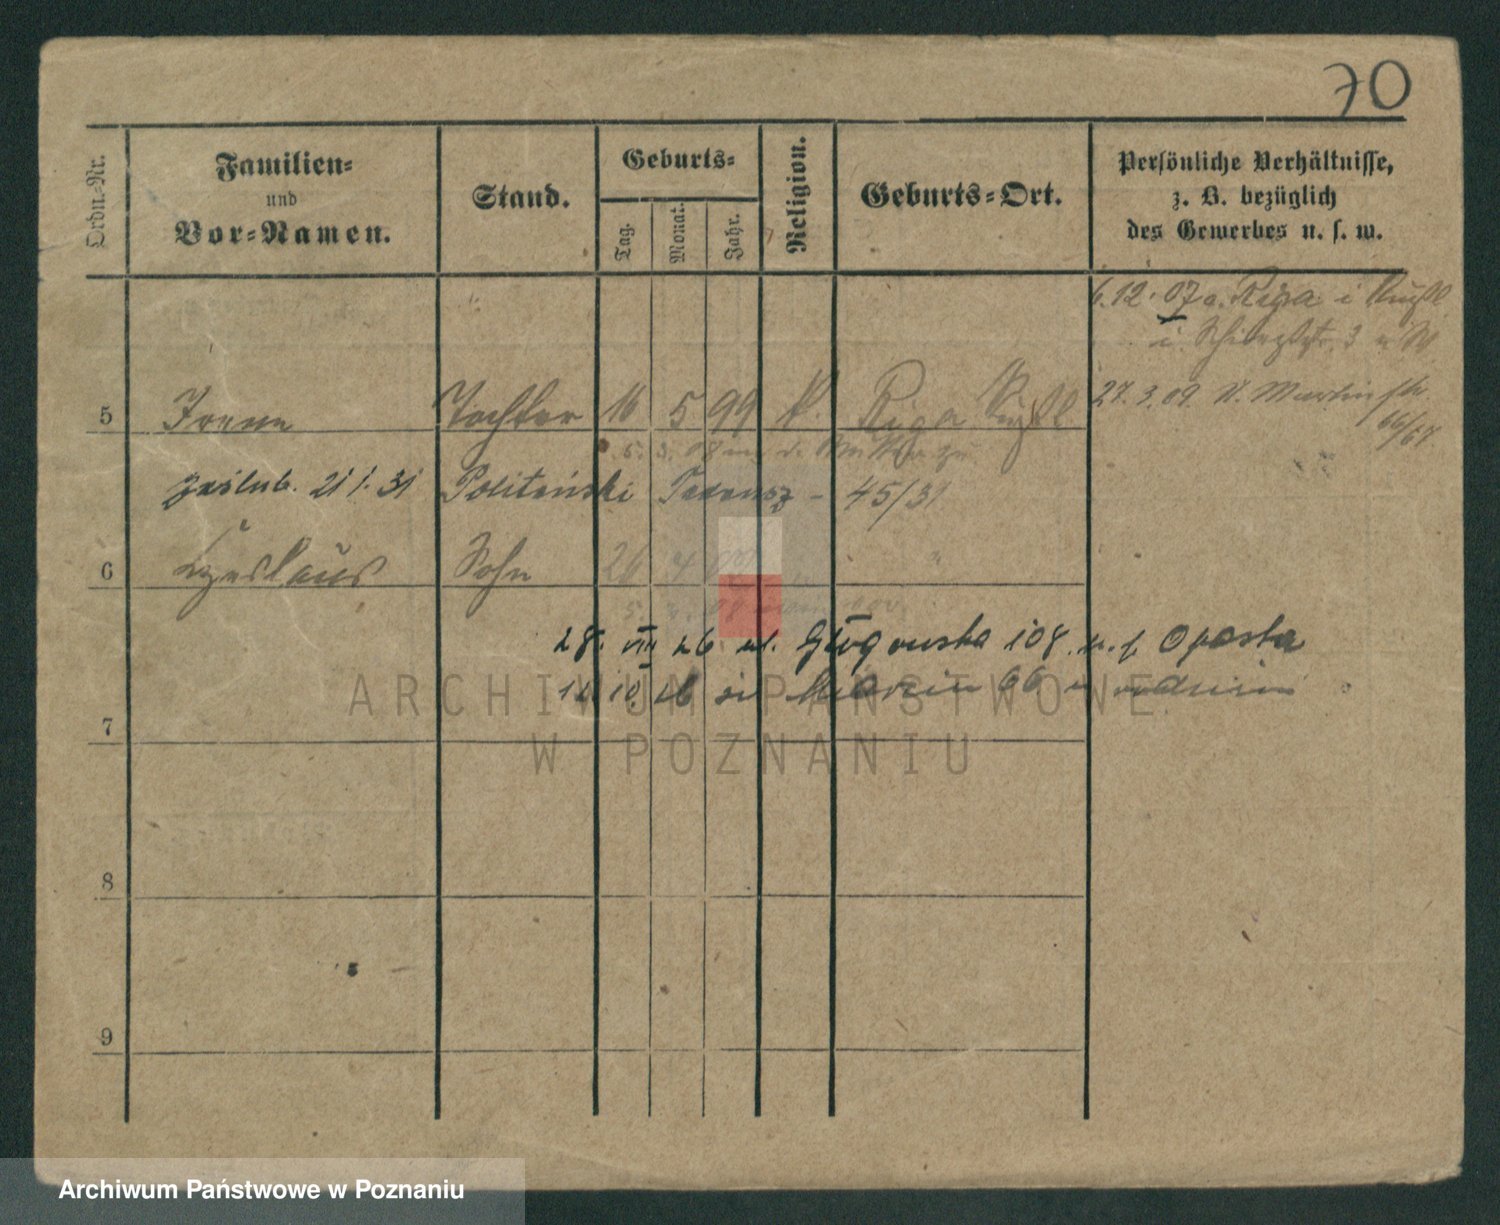 70
Ordn.-Nr.
Familien-
und
Vor-Namen.
Stand.
Geburts-
Tag.
Monat.
Jahr.
Religion.
Geburts-Ort.
Persönliche Verhältnisse,
z. B. bezüglich
des Gewerbes u. s. w.
6.12.07 a. Riga i Rußl
i. 3
27.3.09 St. Martinstr.
66/67
5 Irene Tochter 16 5 99 k. Riga Rußl
zaślub. 21 1. 31 Politański Tadeusz - 45/31
6 Czeslaus Sohn 26 4 "
28. VIII 26 ul. Głogowska 108. u. f. Oparta
12. 10. 26 św Marcin 66 u rodziny
7
8
9
ARCHIWUM PAŃSTWOWE
W POZNANIU
Archiwum Państwowe w Poznaniu